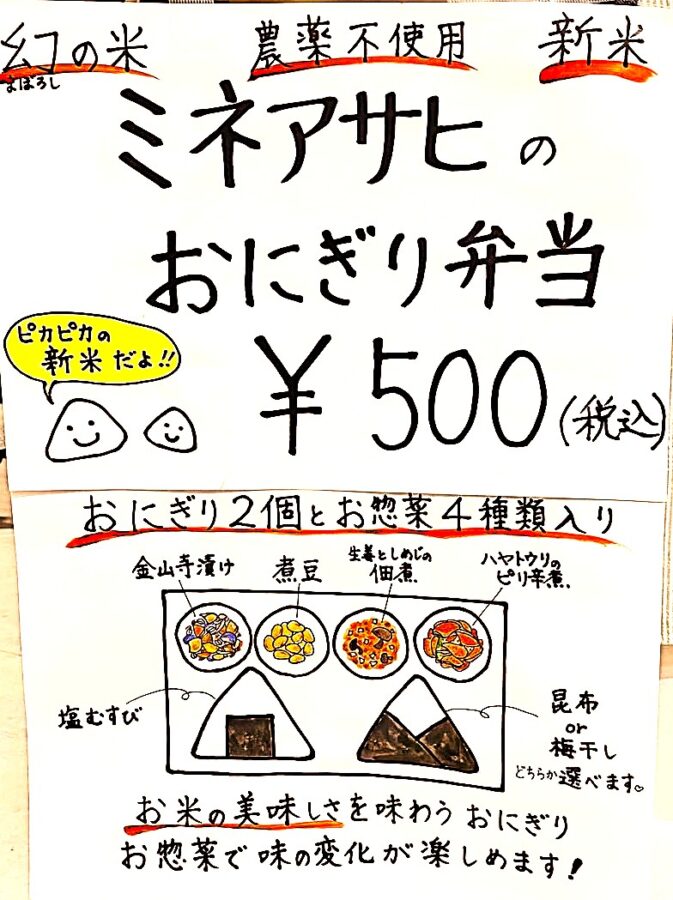 幻の米 農薬不使用 新米
まぼろし
ミネアサヒの
おにぎり弁当
ピカピカの
新米だよ!!
¥500(税込)
おにぎり2個とお惣菜4種類入り
金山寺漬け
煮豆
生姜としめじの
佃煮
ハヤトウリの
ピリ辛煮
塩むすび
昆布
or
梅干し
どちらか選べます♡
お米の美味しさを味わうおにぎり
お惣菜で味の変化が楽しめます!